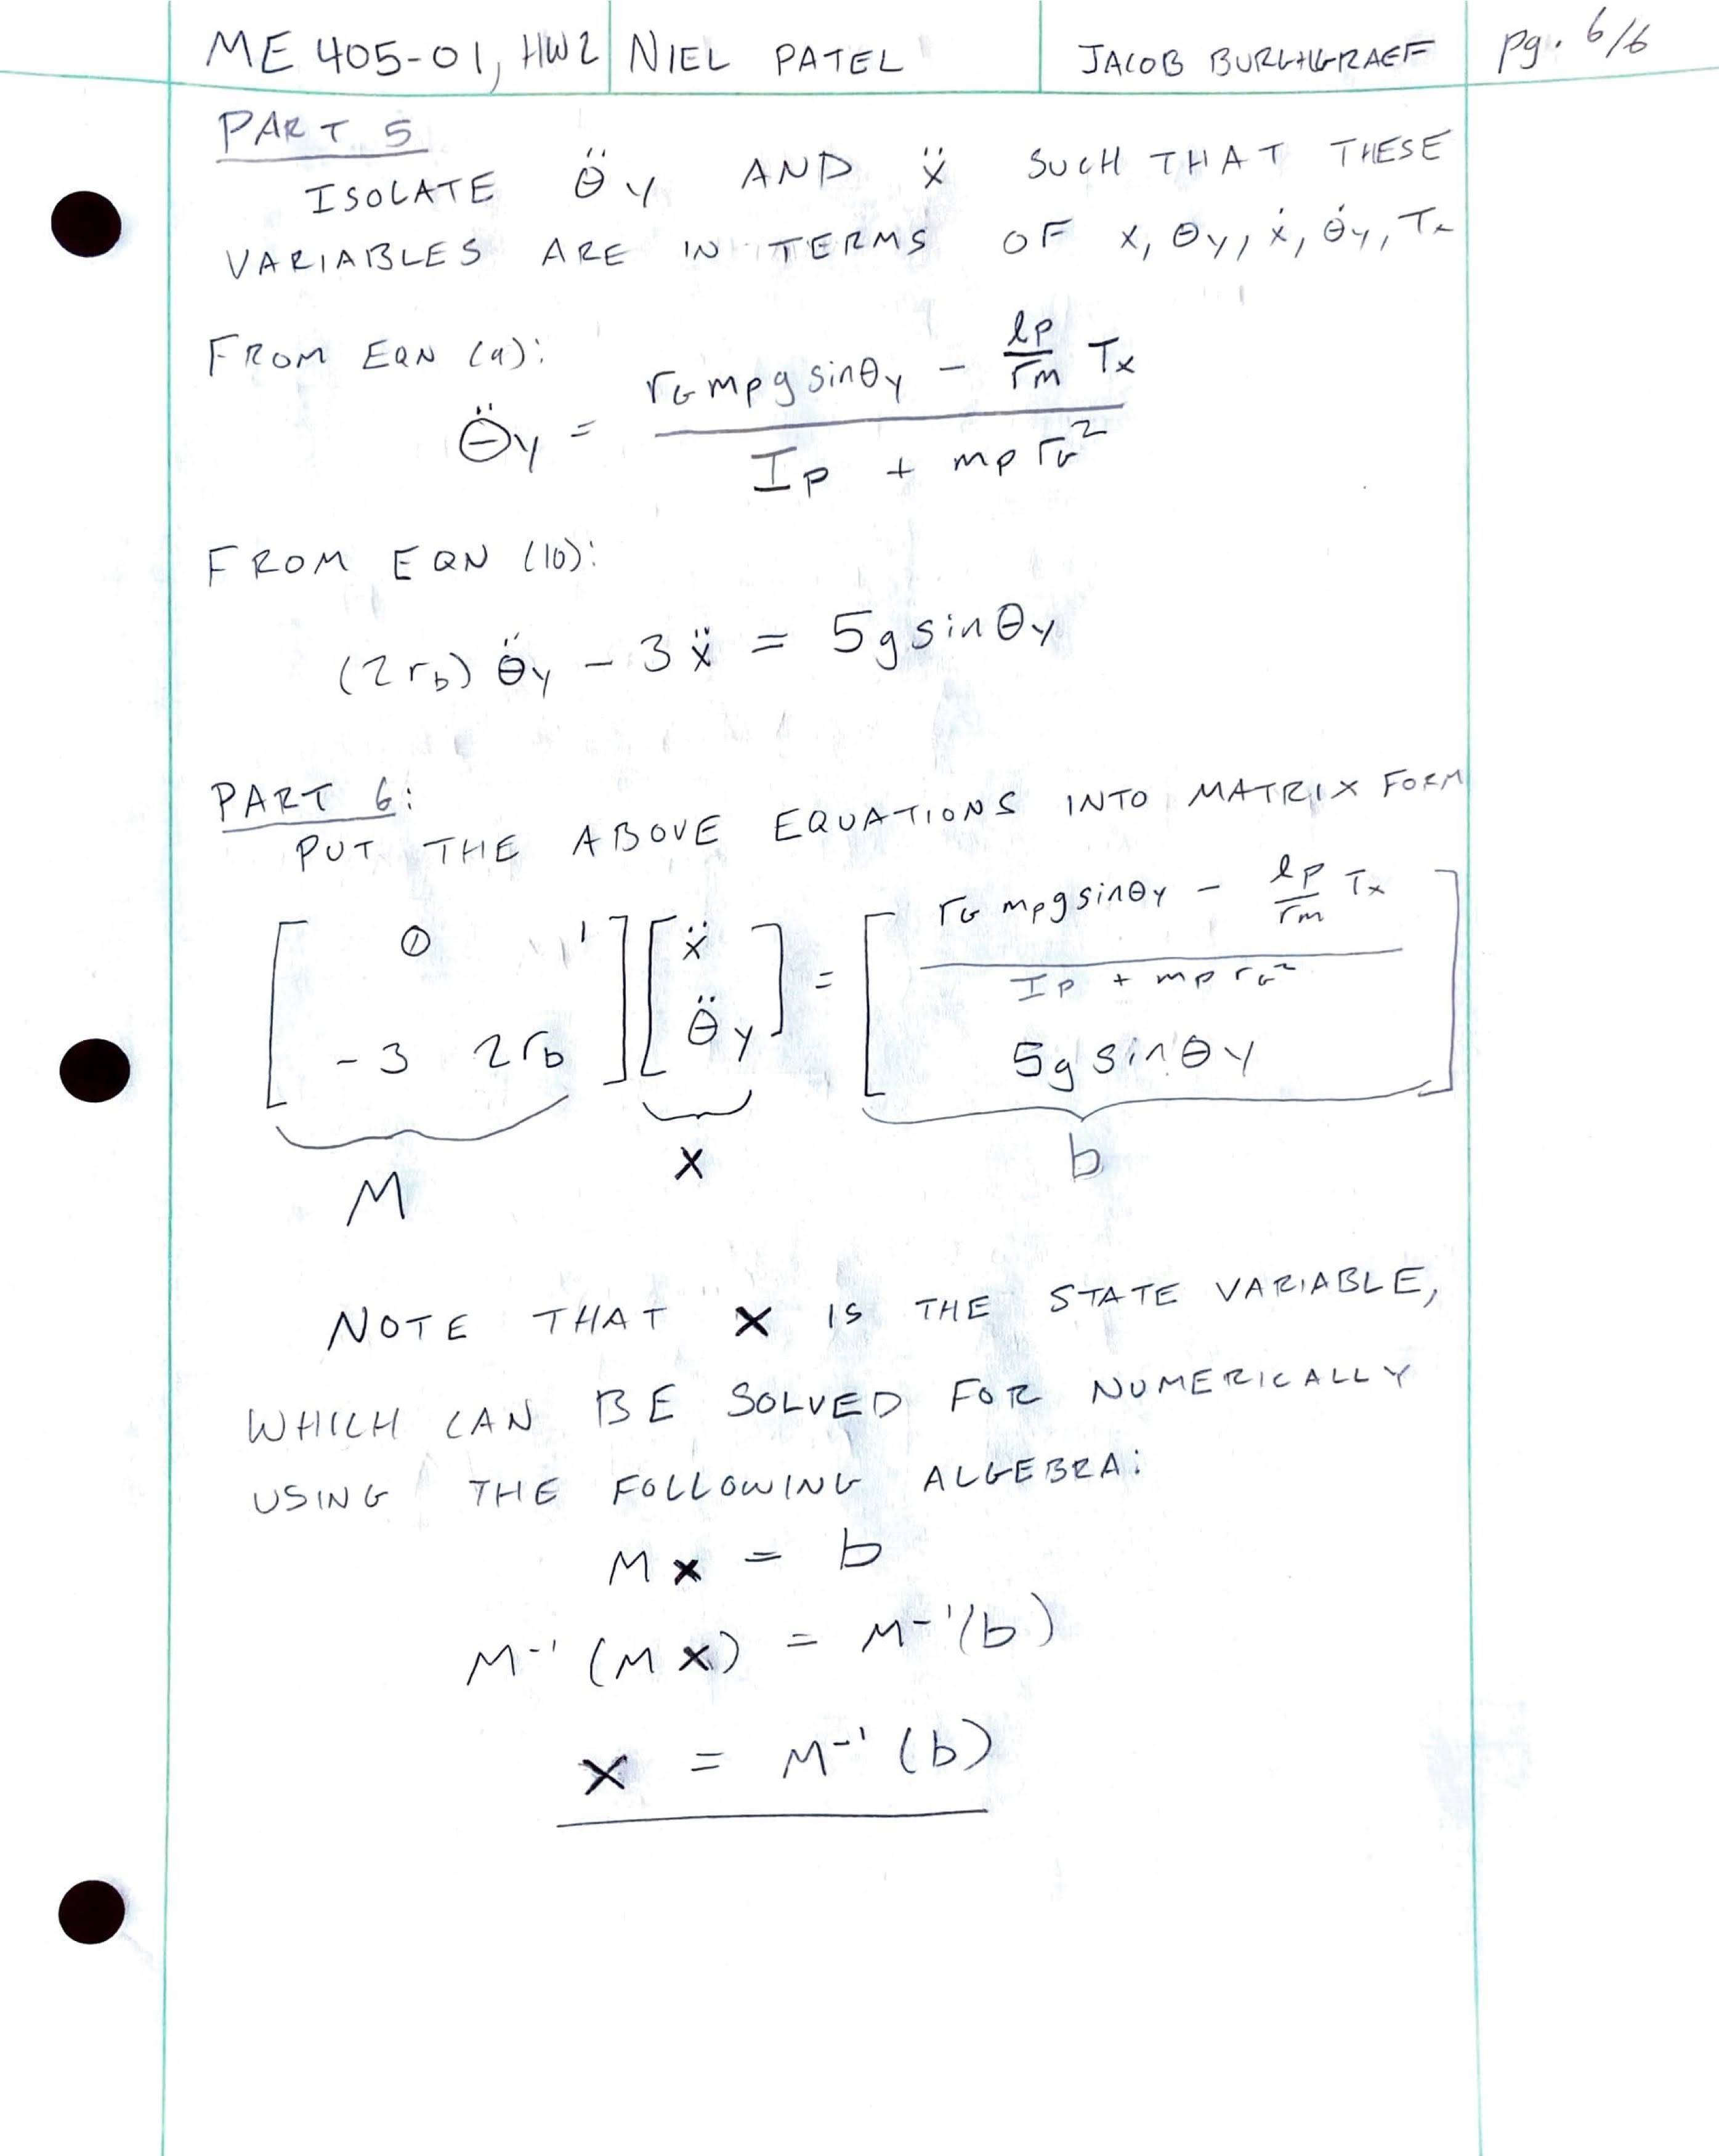 ME 405-01, HW2 NIEL PATEL JACOB BURGHGRAEF pg. 6/6
PART 5
ISOLATE θ̈y AND ẍ SUCH THAT THESE
VARIABLES ARE IN TERMS OF x, θy, ẋ, θ̇y, Tx
FROM EQN (9):
θ̈y = (rG mp g sinθy - (lp/rm) Tx) / (Ip + mp rG²)
FROM EQN (10):
(2 rb) θ̈y - 3 ẍ = 5 g sin θy
PART 6:
PUT THE ABOVE EQUATIONS INTO MATRIX FORM
[0 1; -3 2rb] [ẍ; θ̈y] = [(rG mp g sinθy - (lp/rm) Tx) / (Ip + mp rG²); 5g sinθy]
M x b
NOTE THAT x IS THE STATE VARIABLE,
WHICH CAN BE SOLVED FOR NUMERICALLY
USING THE FOLLOWING ALGEBRA:
M x = b
M⁻¹ (M x) = M⁻¹(b)
x = M⁻¹ (b)